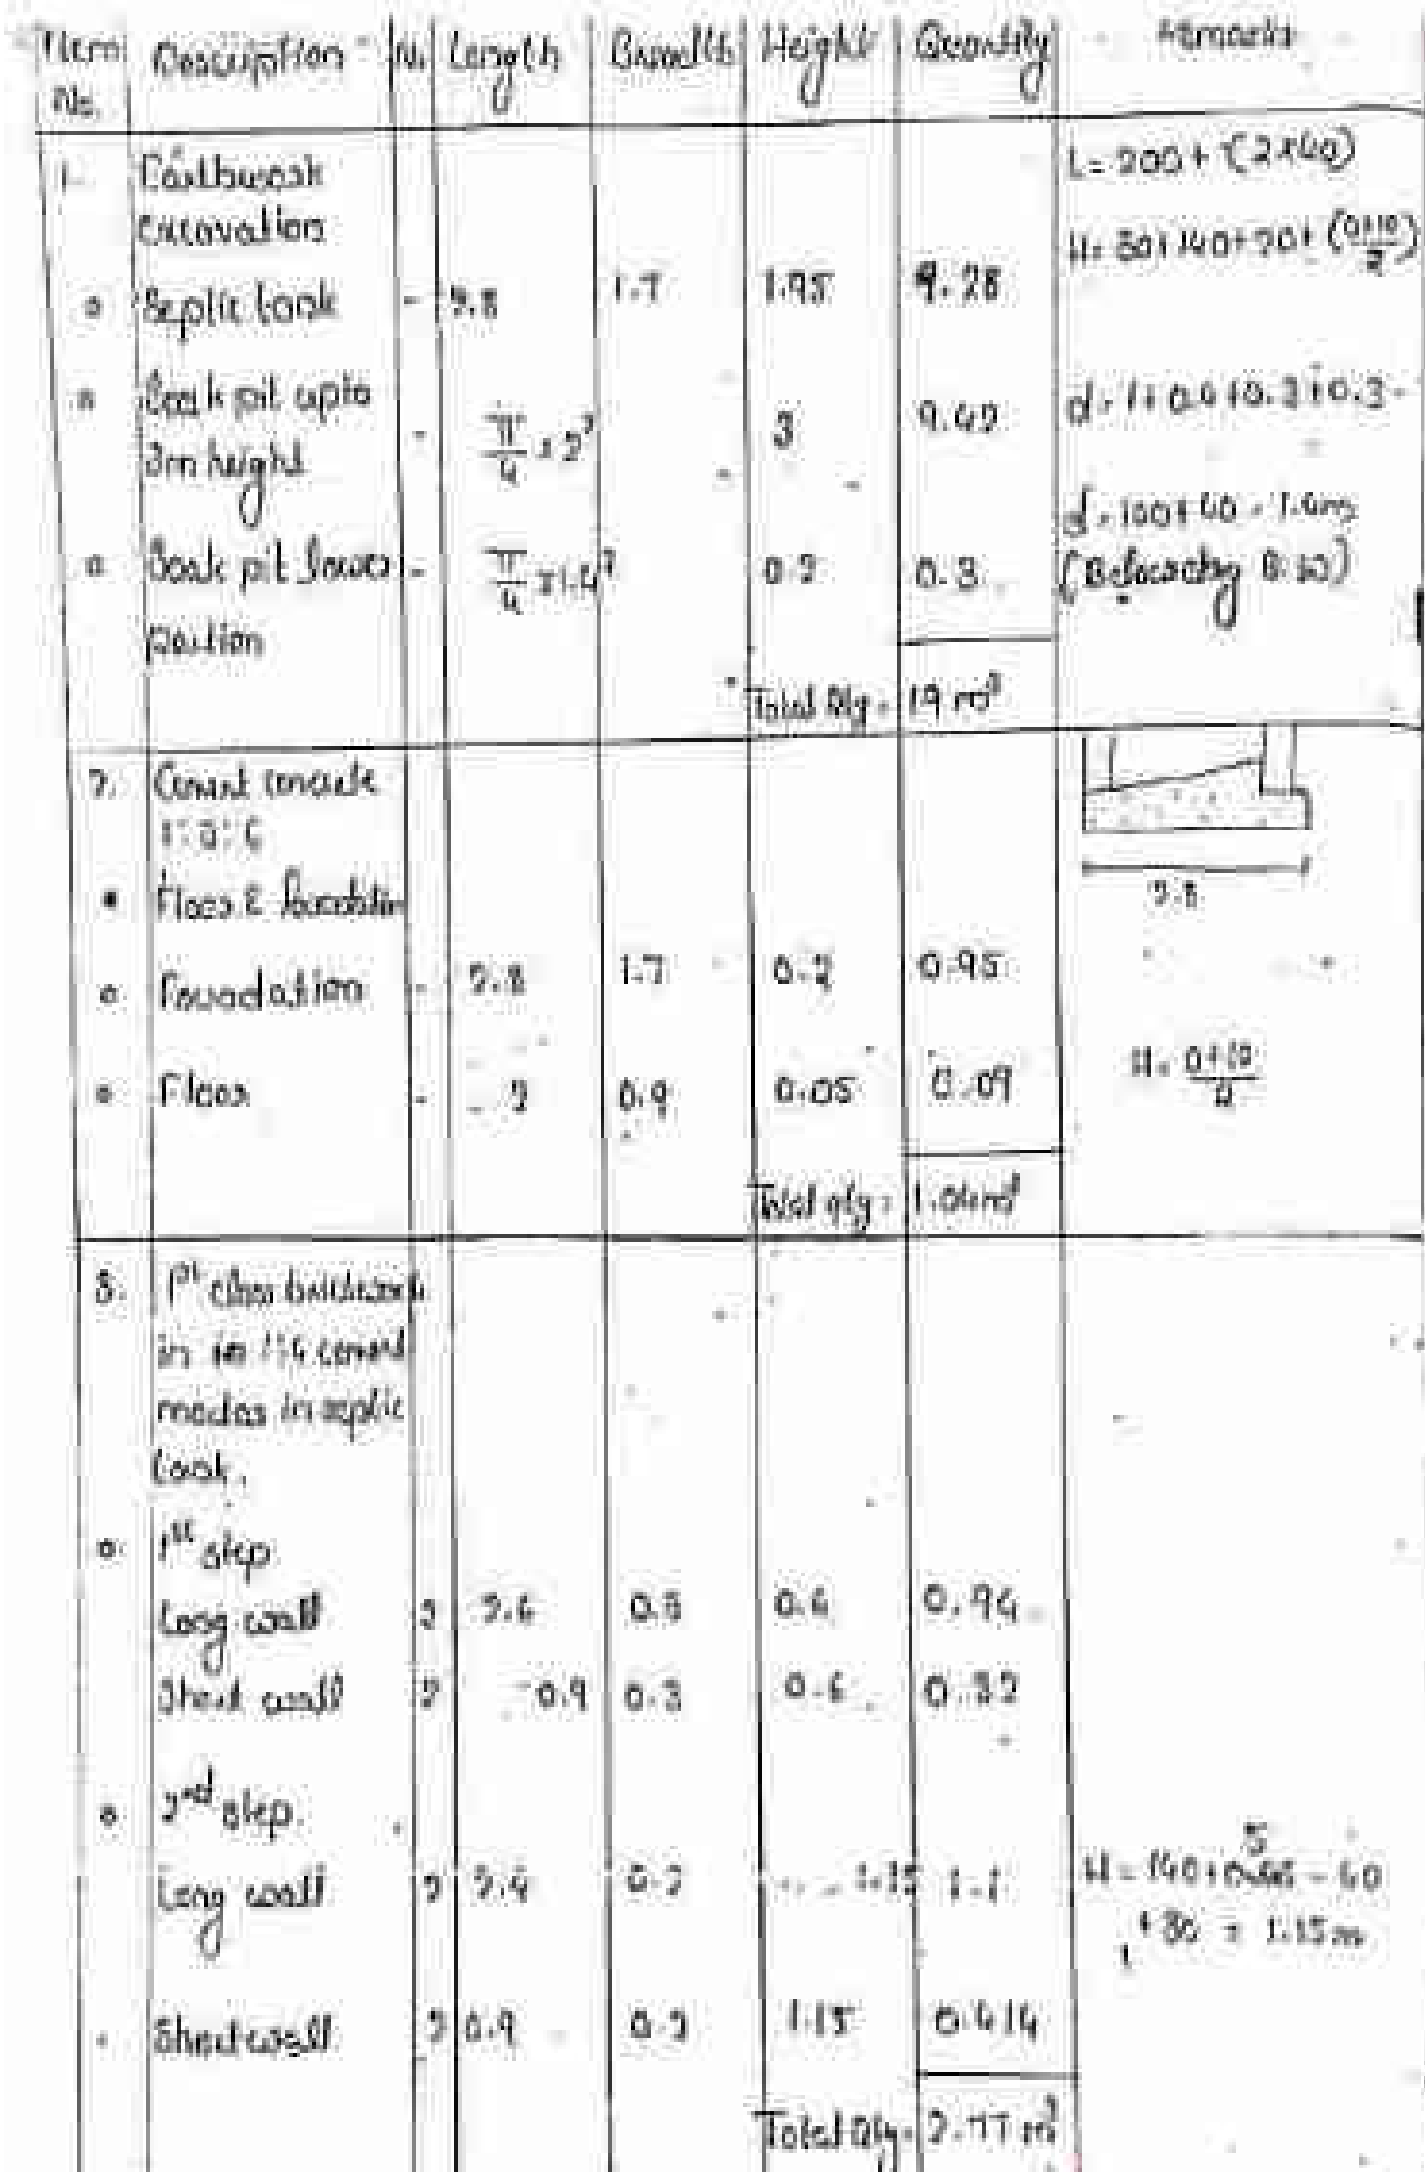 Item No. Description No. Length Breadth Height Quantity Remarks
1. Earthwork excavation
L = 200 + (2×40)
H = 30+140+20+(0+10/2)
Septic tank - 2.8 1.7 1.95 9.28
Soak pit upto 3m height - π/4 × 2² 3 9.42 d = 1+0.4+0.3+0.3
Soak pit lower portion - π/4 × 1.4² 0.2 0.3 d = 100+40 = 1.4m
Total Qty = 19 m³
2. Cement concrete 1:3:6
2.8
Floor & foundation
Foundation - 2.8 1.7 0.2 0.95
Floor - 2 0.9 0.05 0.09 H = 0+10/2
Total qty = 1.04m³
3. 1st class brickwork
in in 1:4 cement
in septic
tank.
1st step
Long wall 2 2.6 0.3 0.6 0.94
Short wall 2 0.9 0.3 0.6 0.32
2nd step.
Long wall 2 2.4 0.2 1.15 1.1 H = 140+5 - 60
+30 = 1.15m
Short wall 2 0.9 0.2 1.15 0.414
Total Qty = 2.77 m³